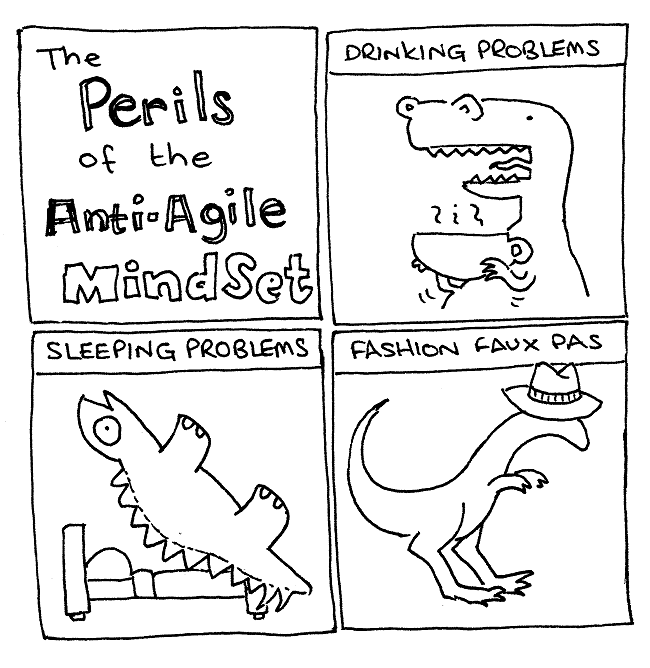 The
Perils
of the
Anti-Agile
MindSet
DRINKING PROBLEMS
SLEEPING PROBLEMS
FASHION FAUX PAS